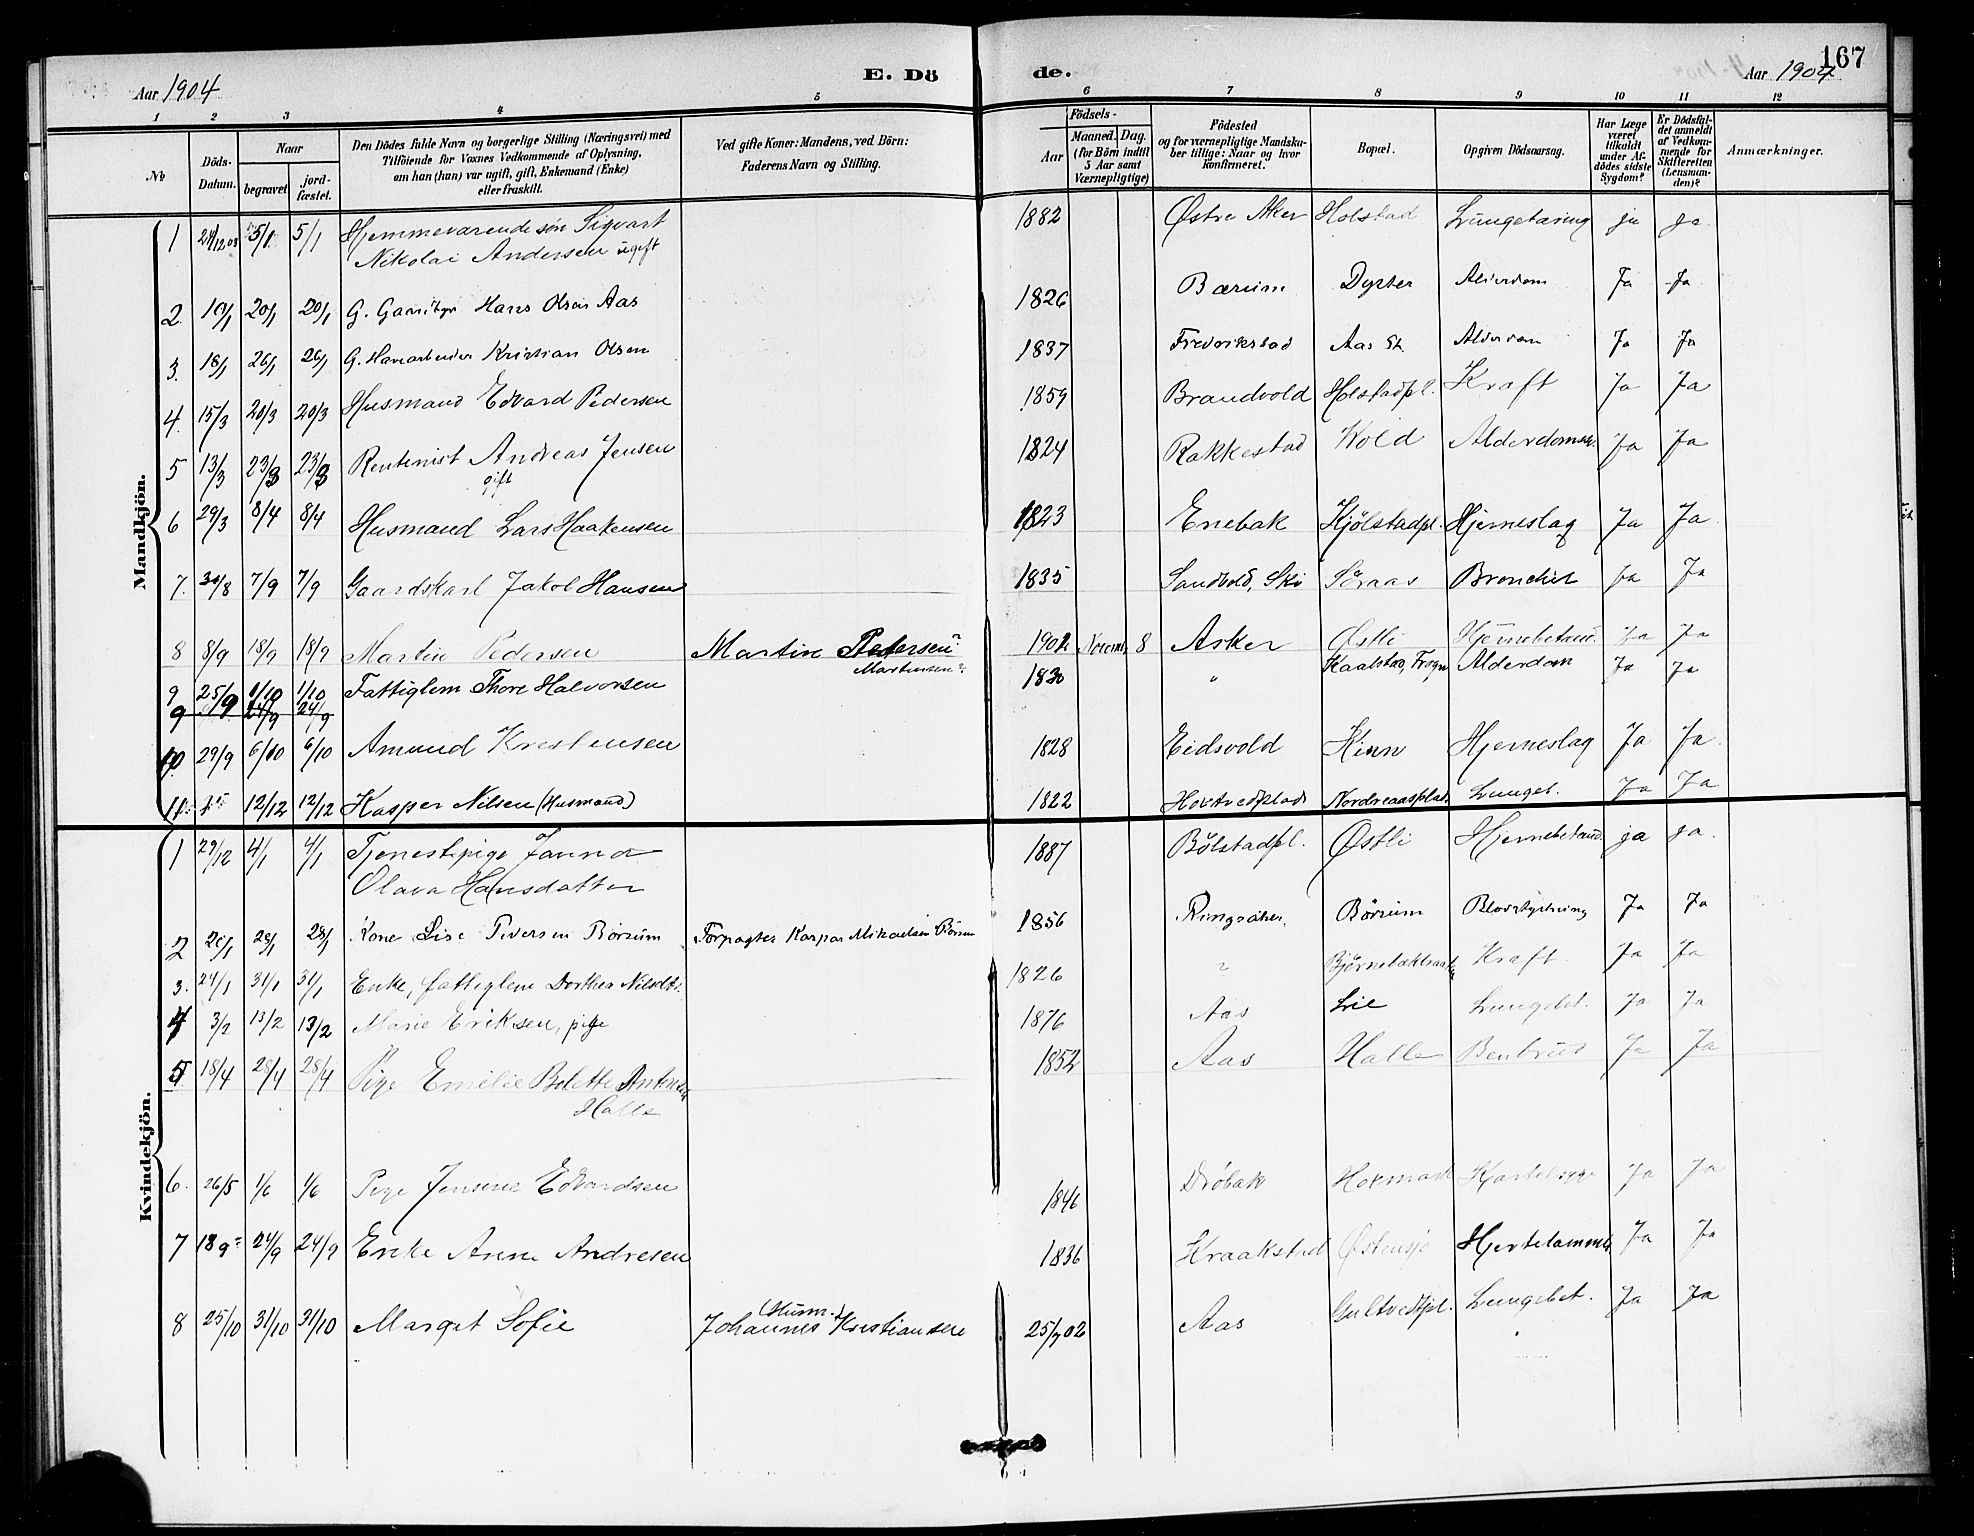 167
Aar 1904 E. Dö de. Aar 1904
1 2 3 4 5 6 7 8 9 10 11 12
No
Döds-Datum.
Naar
begravet
jord-fæstet.
Den Dödes fulde Navn og borgerlige Stilling (Næringsvei) med
Tilföiende for Voxnes Vedkommende af Oplysning,
om han (hun) var ugift, gift, Enkemand (Enke)
eller fraskilt.
Ved gifte Koner: Mandens, ved Börn:
Faderens Navn og Stilling.
Födsels-
Aar
Maaned. Dag.
(for Börn indtil
5 Aar samt
Værnepligtige)
Födested
og for værnepligtige Mandska-
ber tillige: Naar og hvor
konfirmeret.
Bopæl.
Opgiven Dödsaarsag.
Har Læge
været
tilkaldt
under Af-
dödes sidste
Sygdom?
Er Dödsfal-
det anmeldt
af Vedkom-
mende for
Skifteretten
(Lensman-
den)?
Anmærkninger.
Mandkjön.
1 5/1 5/1 Hjemmeværende søn Sigvart 1882 Østre Aker Holstad Lungetæring ja ja
Nikolai Andersen ugift
2 20/1 20/1 Hans Olsen Aas 1826 Bærum Dyster Alderdom Ja Ja
3. 18/1 26/1 26/1 G. Kristian Olsen 1837 Fredrikstad Aas St. Alderdom Ja Ja
4. 15/3 20/3 20/3 Husmand Edvard Pedersen 1859 Brandvold Holstadpl. Kraft Ja Ja
5 13/3 23/3 23/3 Rentenist Andreas Jensen 1824 Rakkestad Wold Ja Ja
gift
6 29/3 8/4 8/4 Husmand Lars Haakensen 1823 Enebak Kjølstadpl. Hjerneslag Ja Ja
7. 7/9 7/9 Gaardskarl Jakob Hansen 1835 Sandvold, Ski Søraas Ja Ja
8 8/9 18/9 18/9 Martin Pedersen Martin Pedersen Novemb. 8 Asker Østli Ja Ja
Martinsen?
9 25/9 1/10 1/10 Fattiglem Thore Halvorsen 1830 " Kaalstad, Frogn Alderdom Ja Ja
9 24/9 24/9
10 29/9 6/10 6/10 Amund Kristensen 1828 Eidsvold Kinn Hjerneslag Ja Ja
11. 12/12 12/12 Kasper Nilsen (Husmand) 1822 Nordreaasplads Lunget. Ja Ja
Kvindekjön.
1 29/12 4/1 4/1 Tjenestepige Janna 1887 Bölstadpl. Østli ja ja.
Olava Hansdatter
2 28/1 28/1 Kone Lise Pedersen Børsum Forpagter Kaspar Mikaelsen Børsum 1856 Ringsaker Børsum Ja Ja
3. 24/1 31/1 31/1 Enke, fattiglem Dorthea Nilsdtr. 1826 " Kraft Ja Ja
4 3/2 13/2 13/2 Marie Eriksen, pige 1876 Aas Lie Lungebet. Ja Ja
5 18/4 28/4 28/4 Pige Emilie Bolette 1852 Aas Halle Benbrud Ja Ja
Halle
6. 26/5 1/6 1/6 Pige Jensine Edvardsen 1846 Drøbak Ja Ja
7 18 9 24/9 24/9 Enke Anne Andresen 1836 Kraakstad Østensjø Hjertelammelse Ja Ja
8 25/10 31/10 31/10 Margit Sofie (Husm.) Johannes Kristiansen 02 Aas Lungebet. Ja Ja